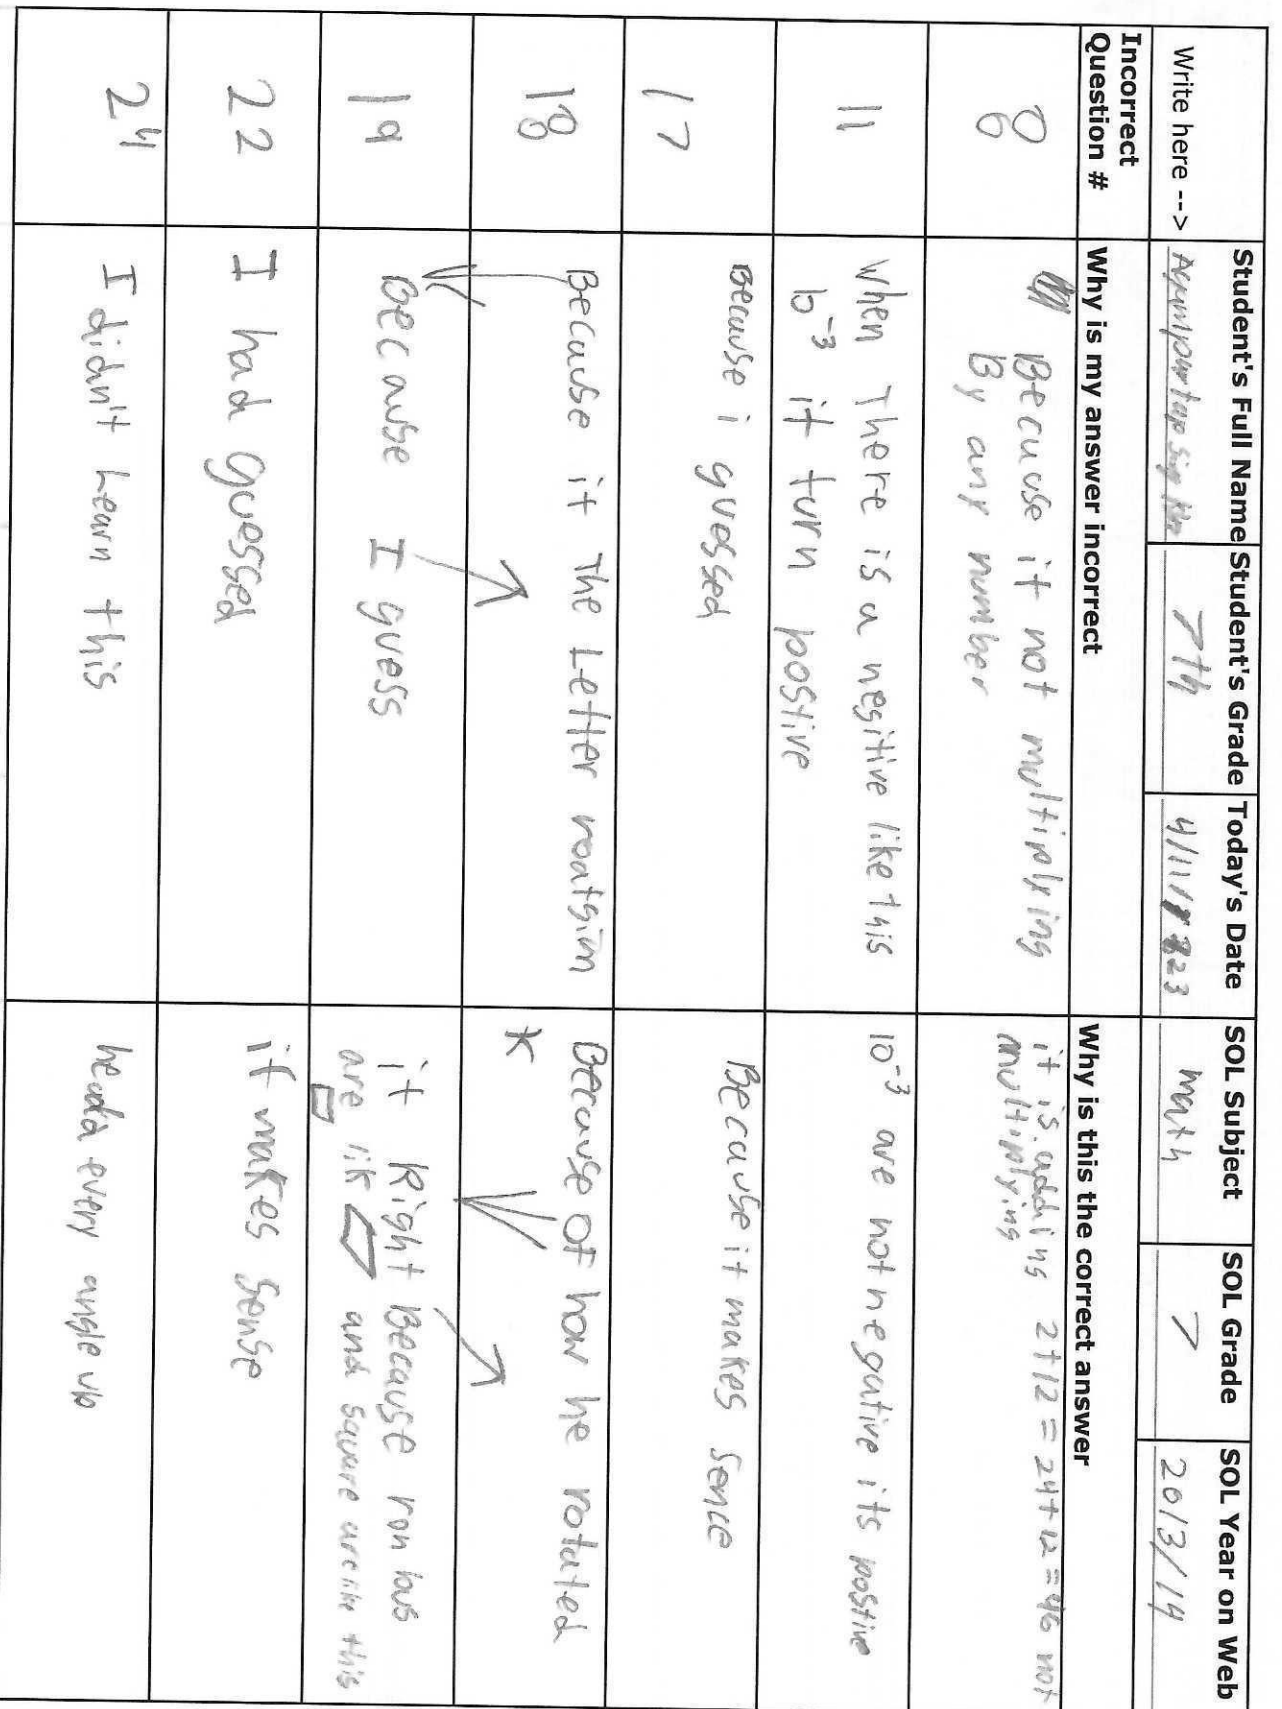 Student's Full Name Student's Grade Today's Date SOL Subject SOL Grade SOL Year on Web
Write here --> 7th 4/11/ 23 math 7 2013/14
Incorrect
Question #
Why is my answer incorrect
Why is this the correct answer
8
Because it not multiplying
By any number
it is adding 2+12 = 24+12 = 46 not
multiplying
11
When There is a negitive like this
10⁻³ it turn postive
10⁻³ are not negative its postive
17
Because i guessed
Because it makes Sence
18
Because it The Letter roatsion
Because of how he rotated
*
19
Because I guess
it Right Because rom bus
are lik ▱ and square are like this
□
22
I had guessed
it makes Sense
24
I didn't Learn this
every angle up